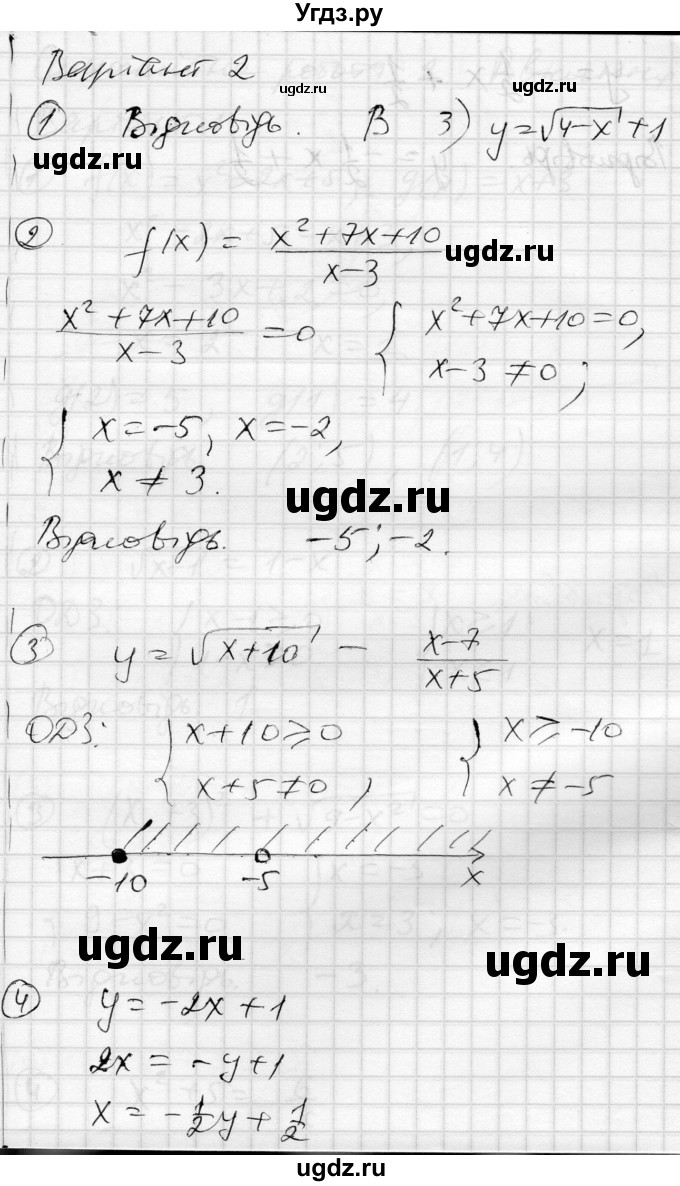 Угдз.ру
Варіант 2
ugdz.ru ugdz.ru
① Відповідь. В 3) y=√(4-x)+1
ugdz.ru
② f(x) = (x²+7x+10)/(x-3)
ugdz.ru
(x²+7x+10)/(x-3) =0 { x²+7x+10=0,
x-3 ≠0;
{ x=-5, x=-2,
x ≠ 3.
ugdz.ru
Відповідь. -5; -2.
③ y=√(x+10) - (x-7)/(x+5)
ОДЗ: { x+10⩾0 { x⩾-10
x+5≠0, x≠-5
-10 -5 x
ugdz.ru ugdz.ru
④ y=-2x+1
2x=-y+1
x=-½y+½
ugdz.ru ugdz.ru
ugdz.ru